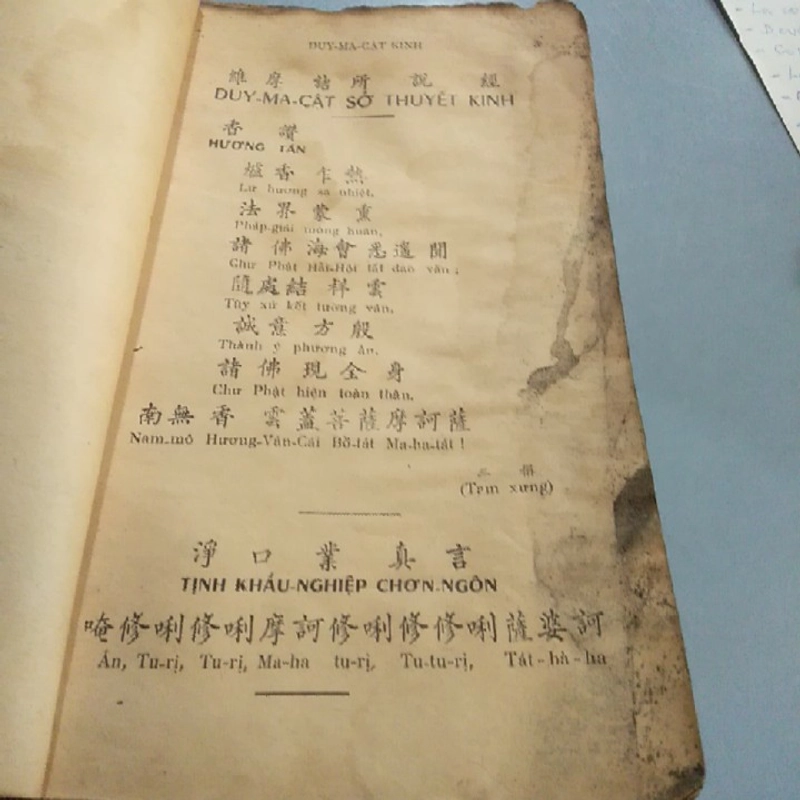 DUY-MA-CẬT KINH
維摩詰所說經
DUY-MA-CẬT SỞ THUYẾT KINH
香讚
HƯƠNG TÁN
爐香乍熱
Lư hương sạ nhiệt,
法界蒙熏
Pháp-giái mông huân,
諸佛海會悉遙聞
Chư Phật Hải-Hội tất dao văn;
隨處結祥雲
Tùy xứ kết tường vân,
誠意方殷
Thành ý phương ân,
諸佛現全身
Chư Phật hiện toàn thân,
南無香雲蓋菩薩摩訶薩
Nam-mô Hương-Vân-Cái Bồ-tát Ma-ha-tát!
三稱
(Tam xưng)
淨口業真言
TỊNH KHẨU-NGHIỆP CHƠN-NGÔN
唵修唎修唎摩訶修唎修修唎薩婆訶
Án, Tu-rị, Tu-rị, Ma-ha tu-rị, Tu-tu-rị, Tát-bà-ha